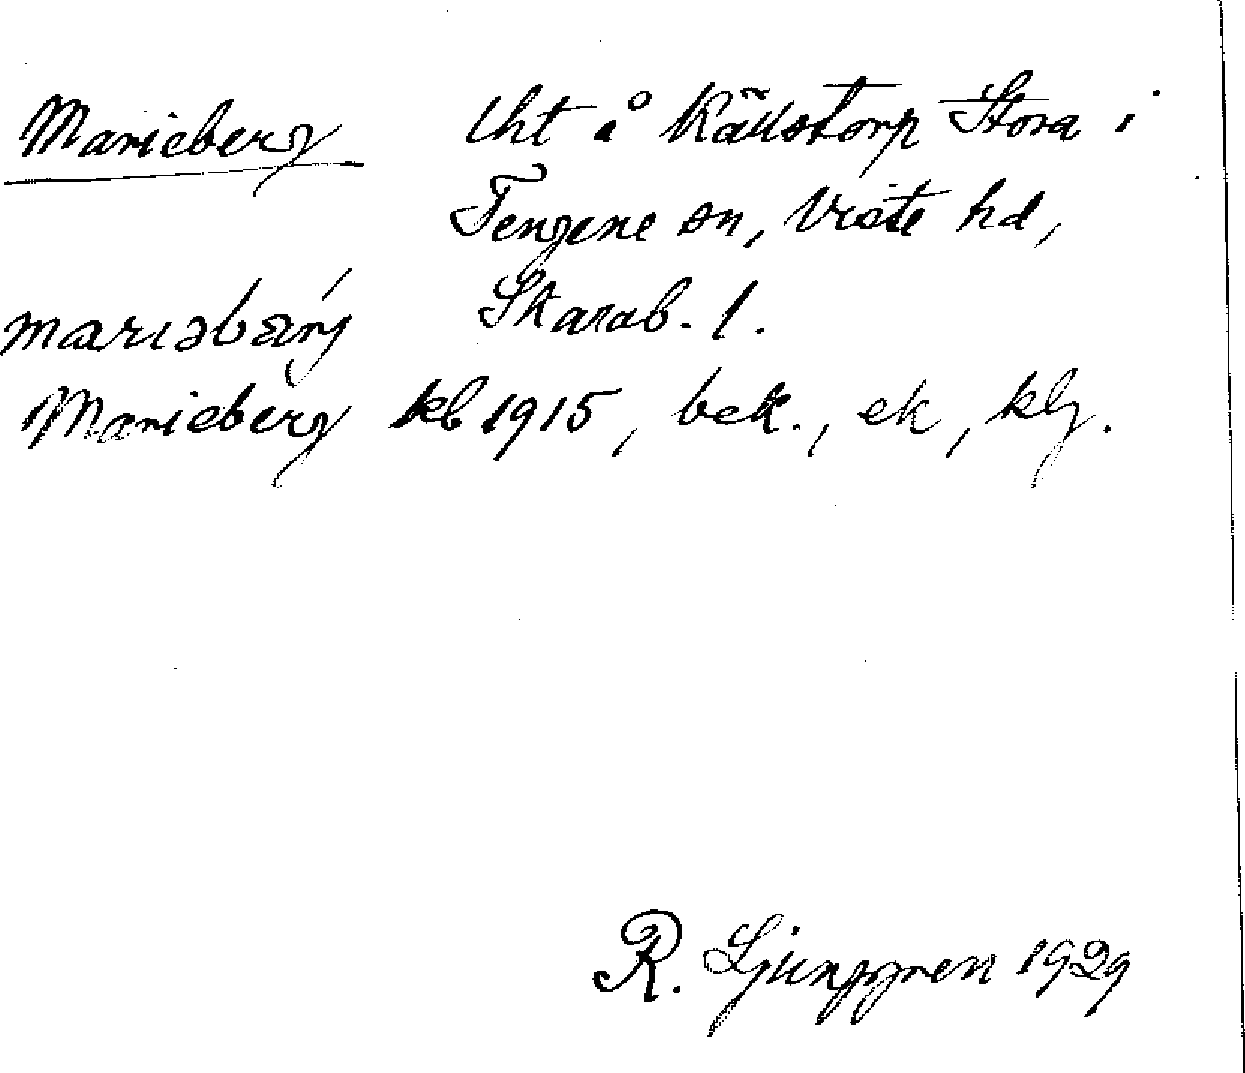 Marieberg lht å Källstorp Stora i
Tengene sn, Viste hd,
Skarab. l.
Marieberg kb 1915, bek., ek, klg.
R. Ljunggren 1929